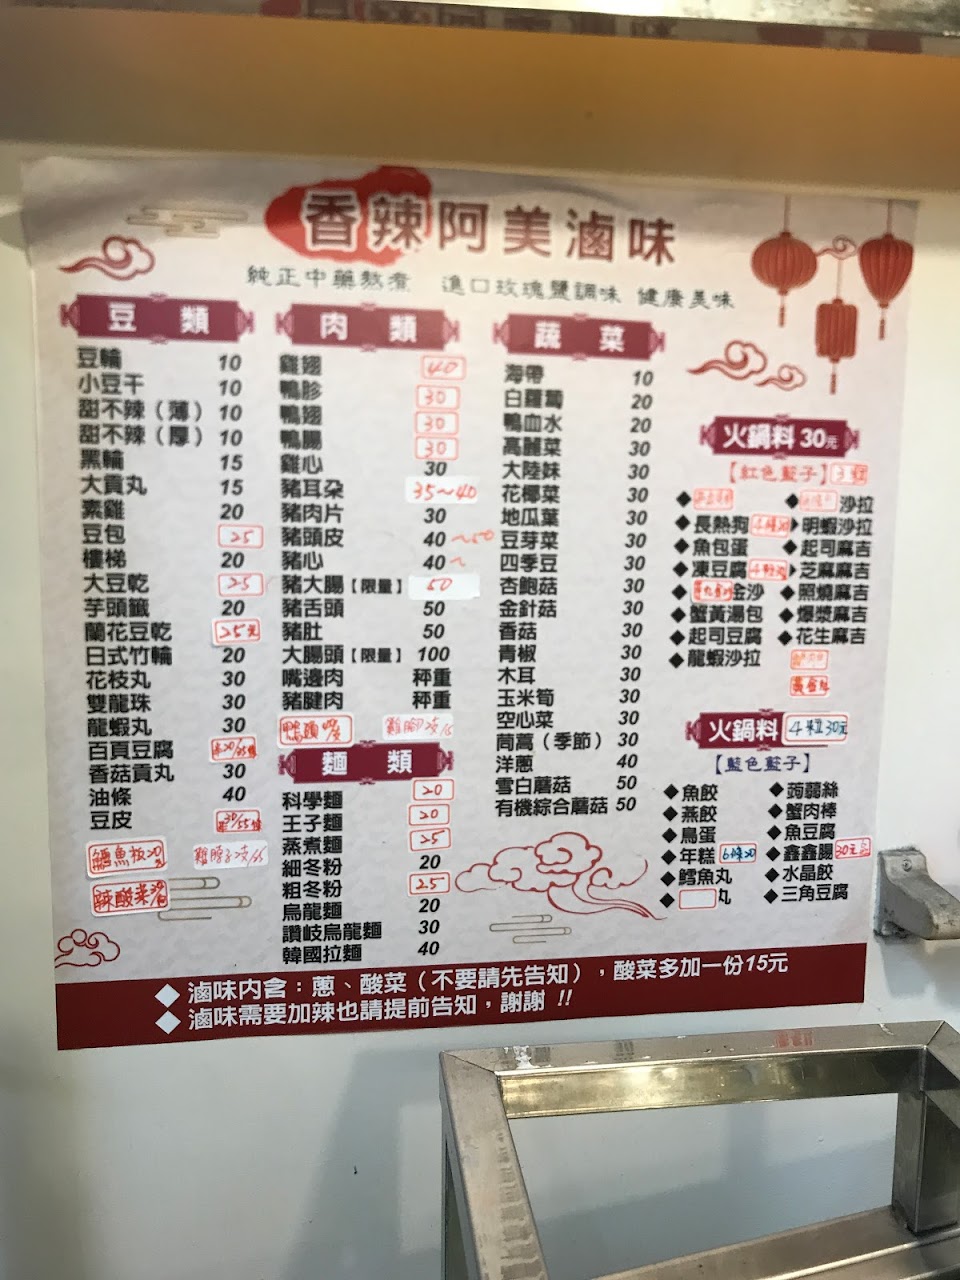 香辣阿美滷味
純正中藥熬煮 進口玫瑰鹽調味 健康美味
豆類
豆輪 10
小豆干 10
甜不辣（薄） 10
甜不辣（厚） 10
黑輪 15
大貢丸 15
素雞 20
豆包 25
樓梯 20
大豆乾 25
芋頭籤 20
蘭花豆乾 25元
日式竹輪 20
花枝丸 30
雙龍珠 30
龍蝦丸 30
百頁豆腐
香菇貢丸 30
油條 40
豆皮 30/55
鱈魚板20
辣酸菜
肉類
雞翅 40
鴨胗 30
鴨翅 30
鴨腸 30
雞心 30
豬耳朵 35~40
豬肉片 30
豬頭皮 40~50
豬心 40~
豬大腸【限量】 60
豬舌頭 50
豬肚 50
大腸頭【限量】 100
嘴邊肉 秤重
豬腱肉 秤重
鴨頭
麵類
科學麵 20
王子麵 20
蒸煮麵 25
細冬粉 20
粗冬粉 25
烏龍麵 20
讚岐烏龍麵 30
韓國拉麵 40
蔬菜
海帶 10
白蘿蔔 20
鴨血水 20
高麗菜 30
大陸妹 30
花椰菜 30
地瓜葉 30
豆芽菜 30
四季豆 30
杏鮑菇 30
金針菇 30
香菇 30
青椒 30
木耳 30
玉米筍 30
空心菜 30
茼萵（季節） 30
洋蔥 40
雪白蘑菇 50
有機綜合蘑菇 50
火鍋料 30元
【紅色籃子】
◆長熱狗
◆魚包蛋
◆凍豆腐
金沙
◆蟹黃湯包
◆起司豆腐
◆龍蝦沙拉
沙拉
◆明蝦沙拉
◆起司麻吉
◆芝麻麻吉
◆照燒麻吉
◆爆漿麻吉
◆花生麻吉
火鍋料 4粒30元
【藍色籃子】
◆魚餃
◆燕餃
◆鳥蛋
◆年糕 6條20
◆鱈魚丸
◆丸
◆蒟蒻絲
◆蟹肉棒
◆魚豆腐
◆鑫鑫腸 30元
◆水晶餃
◆三角豆腐
◆滷味內含：蔥、酸菜（不要請先告知），酸菜多加一份15元
◆滷味需要加辣也請提前告知，謝謝!!